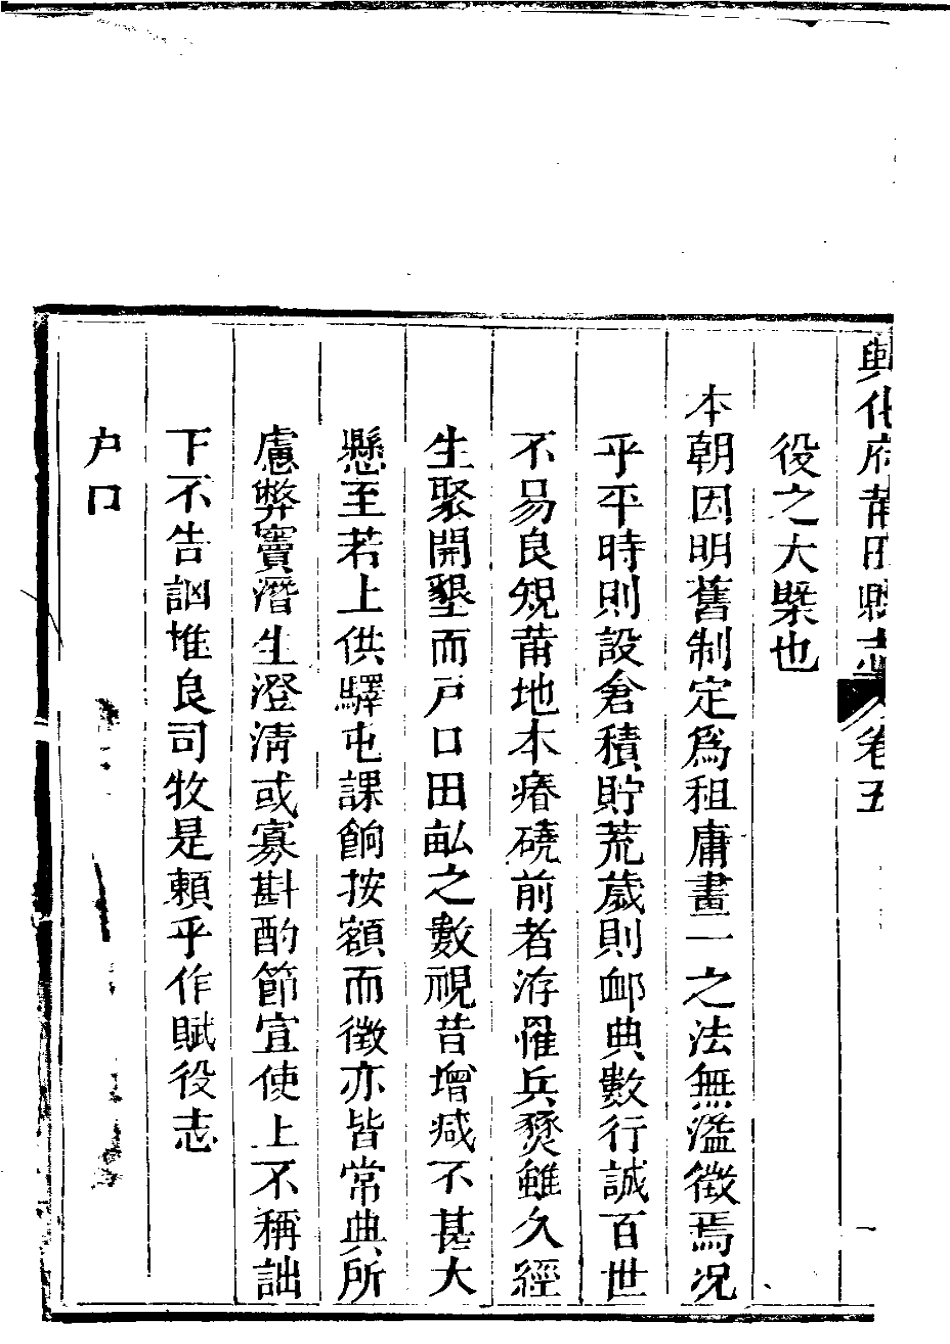 興化府莆田縣志卷五 一
役之大槩也
本朝因明舊制定爲租庸畫一之法無濫徵焉况
乎平時則設倉積貯荒歲則卹典數行誠百世
不易良䂓莆地本瘠磽前者洊罹兵燹雖久經
生聚開墾而戸口田畝之數視昔增减不甚大
懸至若上供驛屯課餉按額而徵亦皆常典所
慮弊竇潛生澄淸或寡斟酌節宜使上不稱詘
下不告訩惟良司牧是賴乎作賦役志
户口